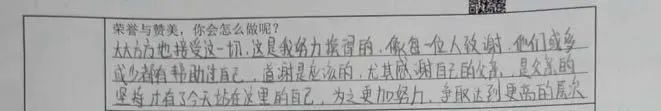 荣誉与赞美，你会怎么做呢？
大大方方地接受这一切，这是我努力换得的，像每一位人致谢，他们或多
或少都有帮助过自己，道谢是应该的，尤其感谢自己的父亲，是父亲的
坚持才有了今天站在这里的自己，为之更加努力，争取达到更高的层次